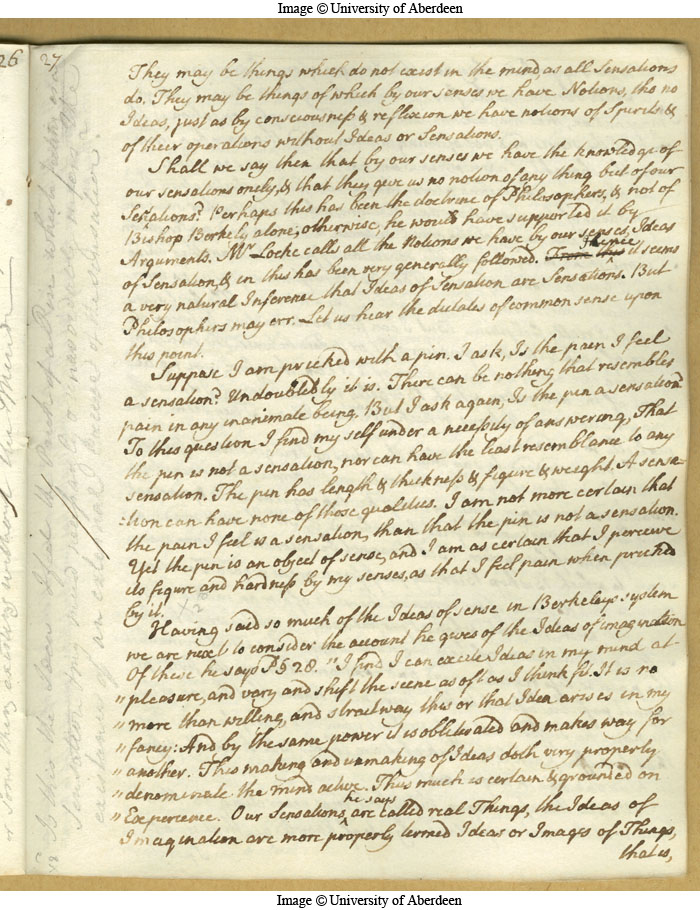 Image © University of Aberdeen
26
27
They may be things which do not exist in the mind, as all Sensations
do. They may be things of which by our senses we have Notions, tho no
Ideas, just as by consciousness & reflexion we have notions of Spirits &
of their operations without Ideas or Sensations.
Shall we say then that by our senses we have the knowledge of
our sensations onely, & that they give us no notion of any thing but of our
Sensations? Perhaps this has been the doctrine of Philosophers, & not of
Bishop Berkely alone, otherwise, he would have supported it by
Arguments. Mr Locke calls all the Notions we have by our senses, Ideas
of Sensation, & in this has been very generally followed. From this Hence it seems
a very natural Inference that Ideas of Sensation are Sensations. But
Philosophers may err. Let us hear the dictates of common sense upon
this point.
Suppose I am pricked with a pin. I ask, Is the pain I feel
a sensation? Undoubtedly it is. There can be nothing that resembles
pain in any inanimate being. But I ask again, Is the pin a sensation?
To this question I find my self under a necessity of answering, That
the pin is not a sensation, nor can have the least resemblance to any
sensation. The pin has length & thickness & figure & weight. A sensa-
:tion can have none of those qualities. I am not more certain that
the pain I feel is a sensation, than that the pin is not a sensation.
Yet the pin is an object of sense, and I am as certain that I perceive
its figure and hardness by my senses, as that I feel pain when pricked
by it.
Having said so much of the Ideas of sense in Berkeleys system
we are next to consider the account he gives of the Ideas of imagination
Of these he says P § 28. "I find I can excite Ideas in my mind at-
" pleasure, and vary and shift the scene as oft as I think fit. It is no
" more than willing, and straitway this or that Idea arises in my
" fancy: And by the same power it is obliterated and makes way for
" another. This making and unmaking of Ideas doth very properly
" denominate the mind active. Thus much is certain & grounded on
" Experience. Our Sensations, he says, are called real Things, the Ideas of
Imagination are more properly termed Ideas or Images of Things,
that is,
Image © University of Aberdeen